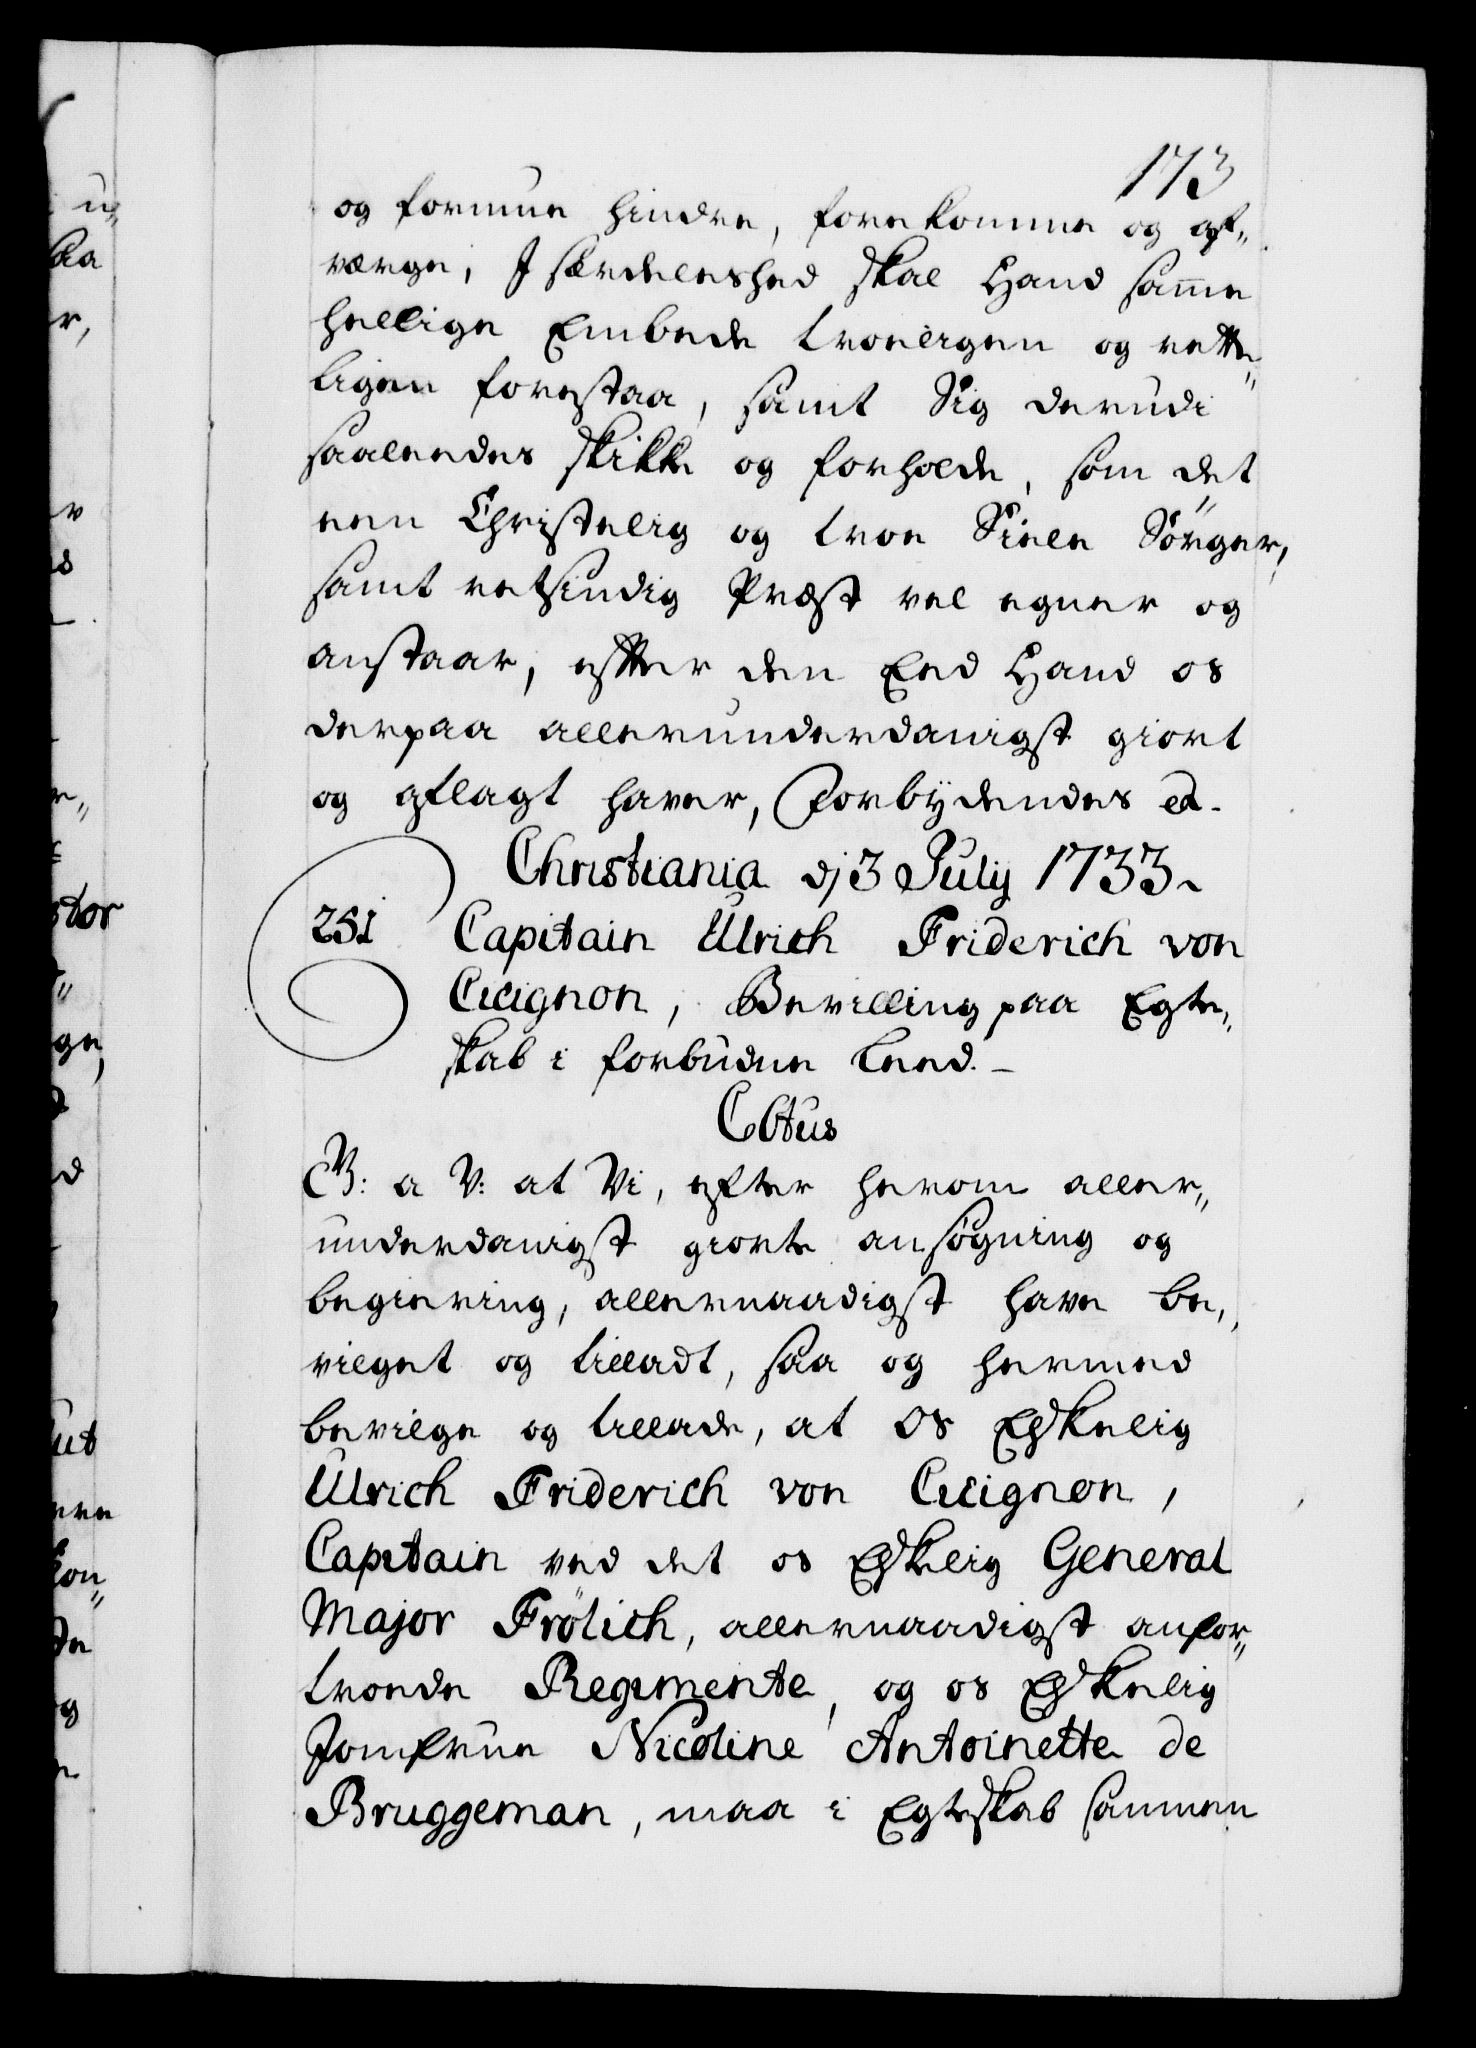 173
og formue hindre, forekomme og af„
værge, J særdeleshed skal Hand samme
hellige Embede troeligen og rette„
ligen forestaa, samt Sig derudi
saaledes skikke og forholde, som det
een Christelig og troe Siæle Sörger,
samt retsindig Præst vel egner og
anstaar, efter den Eed Hand os
derpaa allerunderdanigst giort
og aflagt haver, Forbydendes etc.
Christiania dj 3 July 1733.
251
Capitain Ulrich Friderich von
Cicignon, Bevilling paa Egte„
skab i forbudne Leed.
C6tus
G: a V: at Vi, efter herom aller„
underdanigst giorte ansøgning og
begiering, allernaadigst have be„
vilget og tilladt, saa og hermed
bevilge og tillade, at os Elskelig
Ulrich Friderich von Cicignon,
Capitain ved det os Elskelig General
Major Frölich, allernaadigst anfor„
troede Regimente, og os Elskelig
Jomfrue Nicoline Antoinette de
Bruggeman, maa i Egteskab sammen